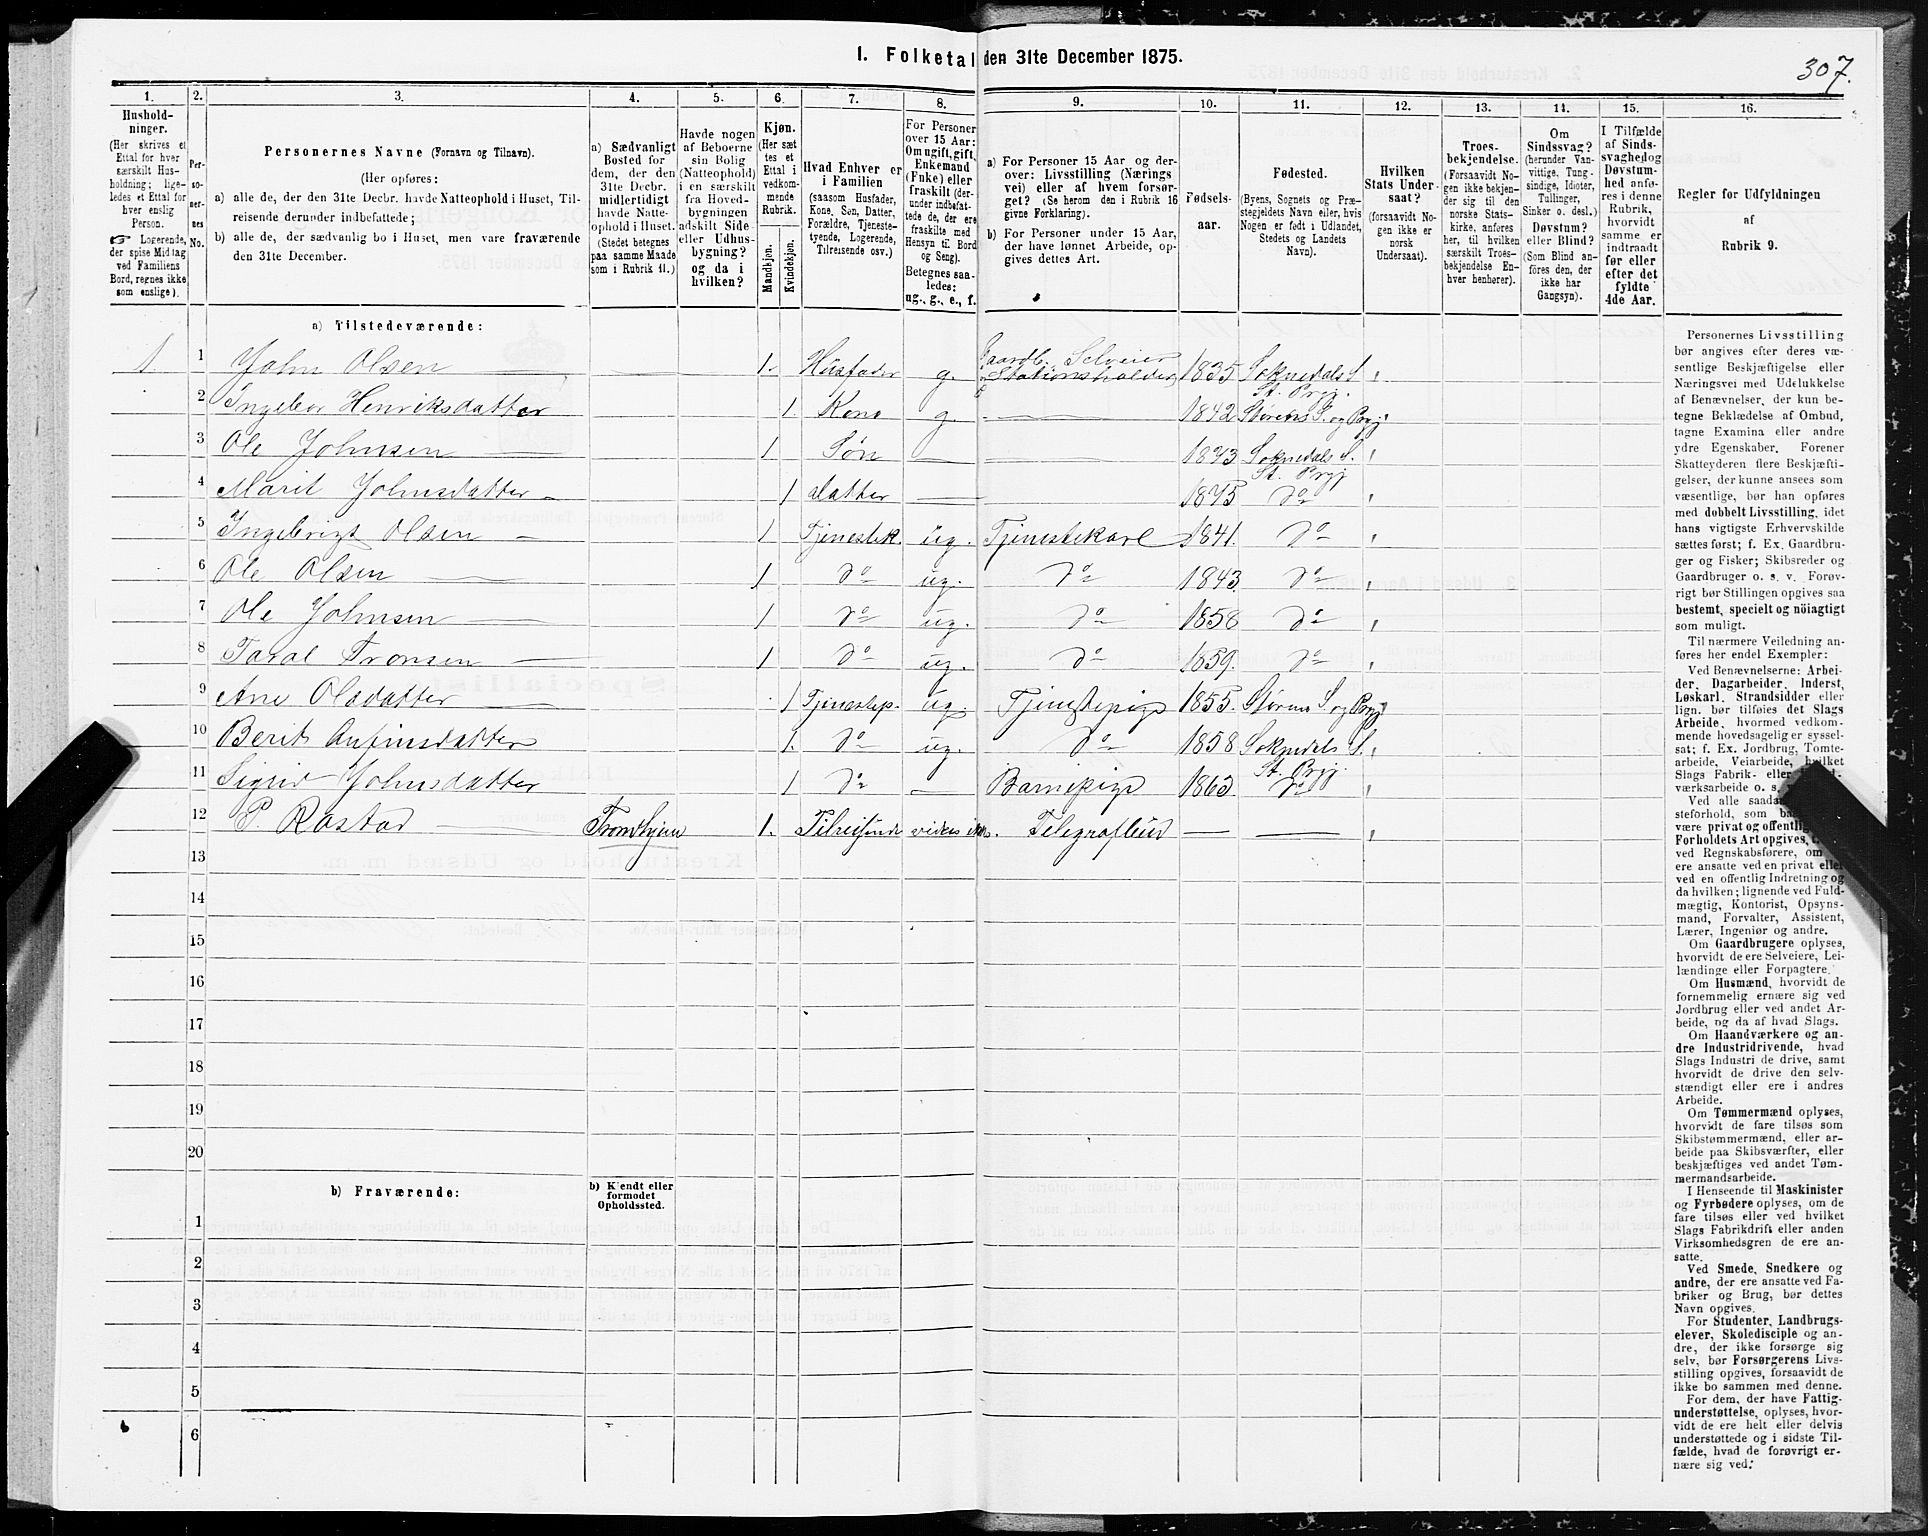 1. Folketal den 31te December 1875.
307.
1. 2. 3. 4. 5. 6. 7. 8. 9. 10. 11. 12. 13. 14. 15. 16.
Hushold-
ninger.
(Her skrives et
Ettal for hver
særskilt Hus-
holdning; lige-
ledes et Ettal for
hver enslig
Person.
☞ Logerende,
der spise Middag
ved Familiens
Bord, regnes ikke
som enslige).
Per-
so-
ner-
nes
No.
Personernes Navne (Fornavn og Tilnavn).
(Her opføres:
a) alle de, der den 31te Decbr. havde Natteophold i Huset, Til-
reisende derunder indbefattede;
b) alle de, der sædvanlig bo i Huset, men vare fraværende
den 31te December.
a) Sædvanligt
Bosted for
dem, der den
31te Decbr.
midlertidigt
havde Natte-
ophold i Huset.
(Stedet betegnes
paa samme Maade
som i Rubrik 11.)
Havde nogen
af Beboerne
sin Bolig
(Natteophold)
i en særskilt
fra Hoved-
bygningen
adskilt Side-
eller Udhus-
bygning?
og da i
hvilken?
Kjøn.
(Her sæt
tes et
Ettal i
vedkom-
mende
Rubrik.
Mandkjøn.
Kvindekjøn.
Hvad Enhver er
i Familien
(saasom Husfader,
Kone, Søn, Datter,
Forældre, Tjeneste-
tyende, Logerende,
Tilreisende osv.)
For Personer
over 15 Aar:
Om ugift, gift,
Enkemand
(Enke) eller
fraskilt (der-
under indbefat-
tede de, der ere
fraskilte med
Hensyn til Bord
og Seng).
Betegnes saa-
ledes:
ug., g., e., f.
a) For Personer 15 Aar og der-
over: Livsstilling (Nærings
vei) eller af hvem forsør-
get? (Se herom den i Rubrik 16
givne Forklaring).
b) For Personer under 15 Aar,
der have lønnet Arbeide, op-
gives dettes Art.
Fødsels-
aar.
Fødested.
(Byens, Sognets og Præ-
stegjeldets Navn eller, hvis
Nogen er født i Udlandet,
Stedets og Landets
Navn).
Hvilken
Stats Under-
saat?
(forsaavidt No-
gen ikke er
norsk
Undersaat).
Troes-
bekjendelse.
(Forsaavidt No-
gen ikke bekjen-
der sig til den
norske Stats-
kirke, anføres
her, til hvilken
særskilt Troes-
bekjendelse En-
hver henhører).
Om
Sindssvag?
(herunder Van-
vittige, Tung-
sindige, Idioter,
Tullinger,
Sinker o. desl.)
Døvstum?
eller Blind?
(Som Blind an-
føres den, der
ikke har
Gangsyn).
I Tilfælde
af Sinds-
svaghed og
Døvstum-
hed anfø-
res i denne
Rubrik,
hvorvidt
samme er
indtraadt
før eller
efter det
fyldte
4de Aar.
Regler for Udfyldningen
af
Rubrik 9.
a) Tilstedeværende:
1 1 John Olsen 1. Husfader g. Gaardb. Selveier
Stationsholder 1835 Soknedals S.
St. Prgj.
2 Ingebor Henriksdatter 1. Kone g. 1842 Størens S. og Prgj
3 Ole Johnsen 1 Søn 1873 Soknedals S.
St. Prgj
4 Marit Johnsdatter 1 datter 1875 do
5 Ingebrigt Olsen 1 Tjenestek. ug. Tjenestekarl 1841. do
6 Ole Olsen 1 do ug. do 1843. do
7 Ole Johnsen 1 do ug. do 1858 do
8 Taral Tronsen 1 do ug. do 1859. do
9 Ane Olsdatter 1 Tjenestep. ug. Tjenestepige 1855. Størens S. og Prgj
10 Berit Anfinsdatter 1. do ug. do 1858 Soknedals S.
St. Prgj.
11 Sigrid Johnsdatter 1 do Barnepige 1863. do
12 P. Rostad Trondhjem 1. Tilreisende vides ikke. Telegrafbud
13
14
15
16
17
18
19
20
b) Fraværende:
b) Kjendt eller
formodet
Opholdssted.
1
2
3
4
5
6
Personernes Livsstilling
bør angives efter deres væ-
sentlige Beskjæftigelse eller
Næringsvei med Udelukkelse
af Benævnelser, der kun be-
tegne Beklædelse af Ombud,
tagne Examina eller andre
ydre Egenskaber. Forener
Skatteyderen flere Beskjæfti-
gelser, der kunne ansees som
væsentlige, bør han opføres
med dobbelt Livsstilling, idet
hans vigtigste Erhvervskilde
sættes først; f. Ex. Gaardbru-
ger og Fisker; Skibsreder og
Gaardbruger o. s. v. Forøv-
rigt bør Stillingen opgives saa
bestemt, specielt og nöiagtigt
som muligt.
Til nærmere Veiledning an-
føres her endel Exempler:
Ved Benævnelserne: Arbei-
der, Dagarbeider, Inderst,
Løskarl, Strandsidder eller
lign. bør tilføies det Slags
Arbeide, hvormed vedkom-
mende hovedsagelig er syssel-
sat; f. Ex. Jordbrug, Tomte-
arbeide, Veiarbeide, hvilket
Slags Fabrik- eller
værksarbeide o. s.
Ved alle saada
steforhold, som
være privat og offentlig
Forholdets Art opgives,
ved Regnskabsførere, om
ere ansatte ved en privat eller
ved en offentlig Indretning og
da hvilken; lignende ved Fuld-
mægtig, Kontorist, Opsyns-
mand, Forvalter, Assistent,
Lærer, Ingeniør og andre.
Om Gaardbrugere oplyses,
hvorvidt de ere Selveiere, Lei-
lændinge eller Forpagtere.
Om Husmænd, hvorvidt de
fornemmelig ernære sig ved
Jordbrug eller ved andet Ar-
beide, og da af hvad Slags.
Om Haandværkere og an-
dre Industridrivende, hvad
Slags Industri de drive, samt
hvorvidt de drive den selv-
stændigt eller ere i andres
Arbeide.
Om Tømmermænd oplyses,
hvorvidt de fare tilsøs som
Skibstømmermænd, eller ar-
beide paa Skibsværfter, eller
beskjæftiges ved andet Tøm-
mermandsarbeide.
I Henseende til Maskinister
og Fyrbødere oplyses, om de
fare tilsøs eller ved hvilket
Slags Fabrikdrift eller anden
Virksomhedsgren de ere an-
satte.
Ved Smede, Snedkere og
andre, der ere ansatte ved Fa-
briker og Brug, bør dettes
Navn opgives.
For Studenter, Landbrugs-
elever, Skoledisciple og an-
dre, der ikke forsørge sig
selv, bør Forsørgerens Livs-
stilling opgives, forsaavidt de
ikke bo sammen med denne.
For dem, der have Fattig-
understøttelse, oplyses, hvor-
vidt de ere helt eller delvis
understøttede og i sidste Til-
fælde, hvad de forøvrigt er-
nære sig ved.